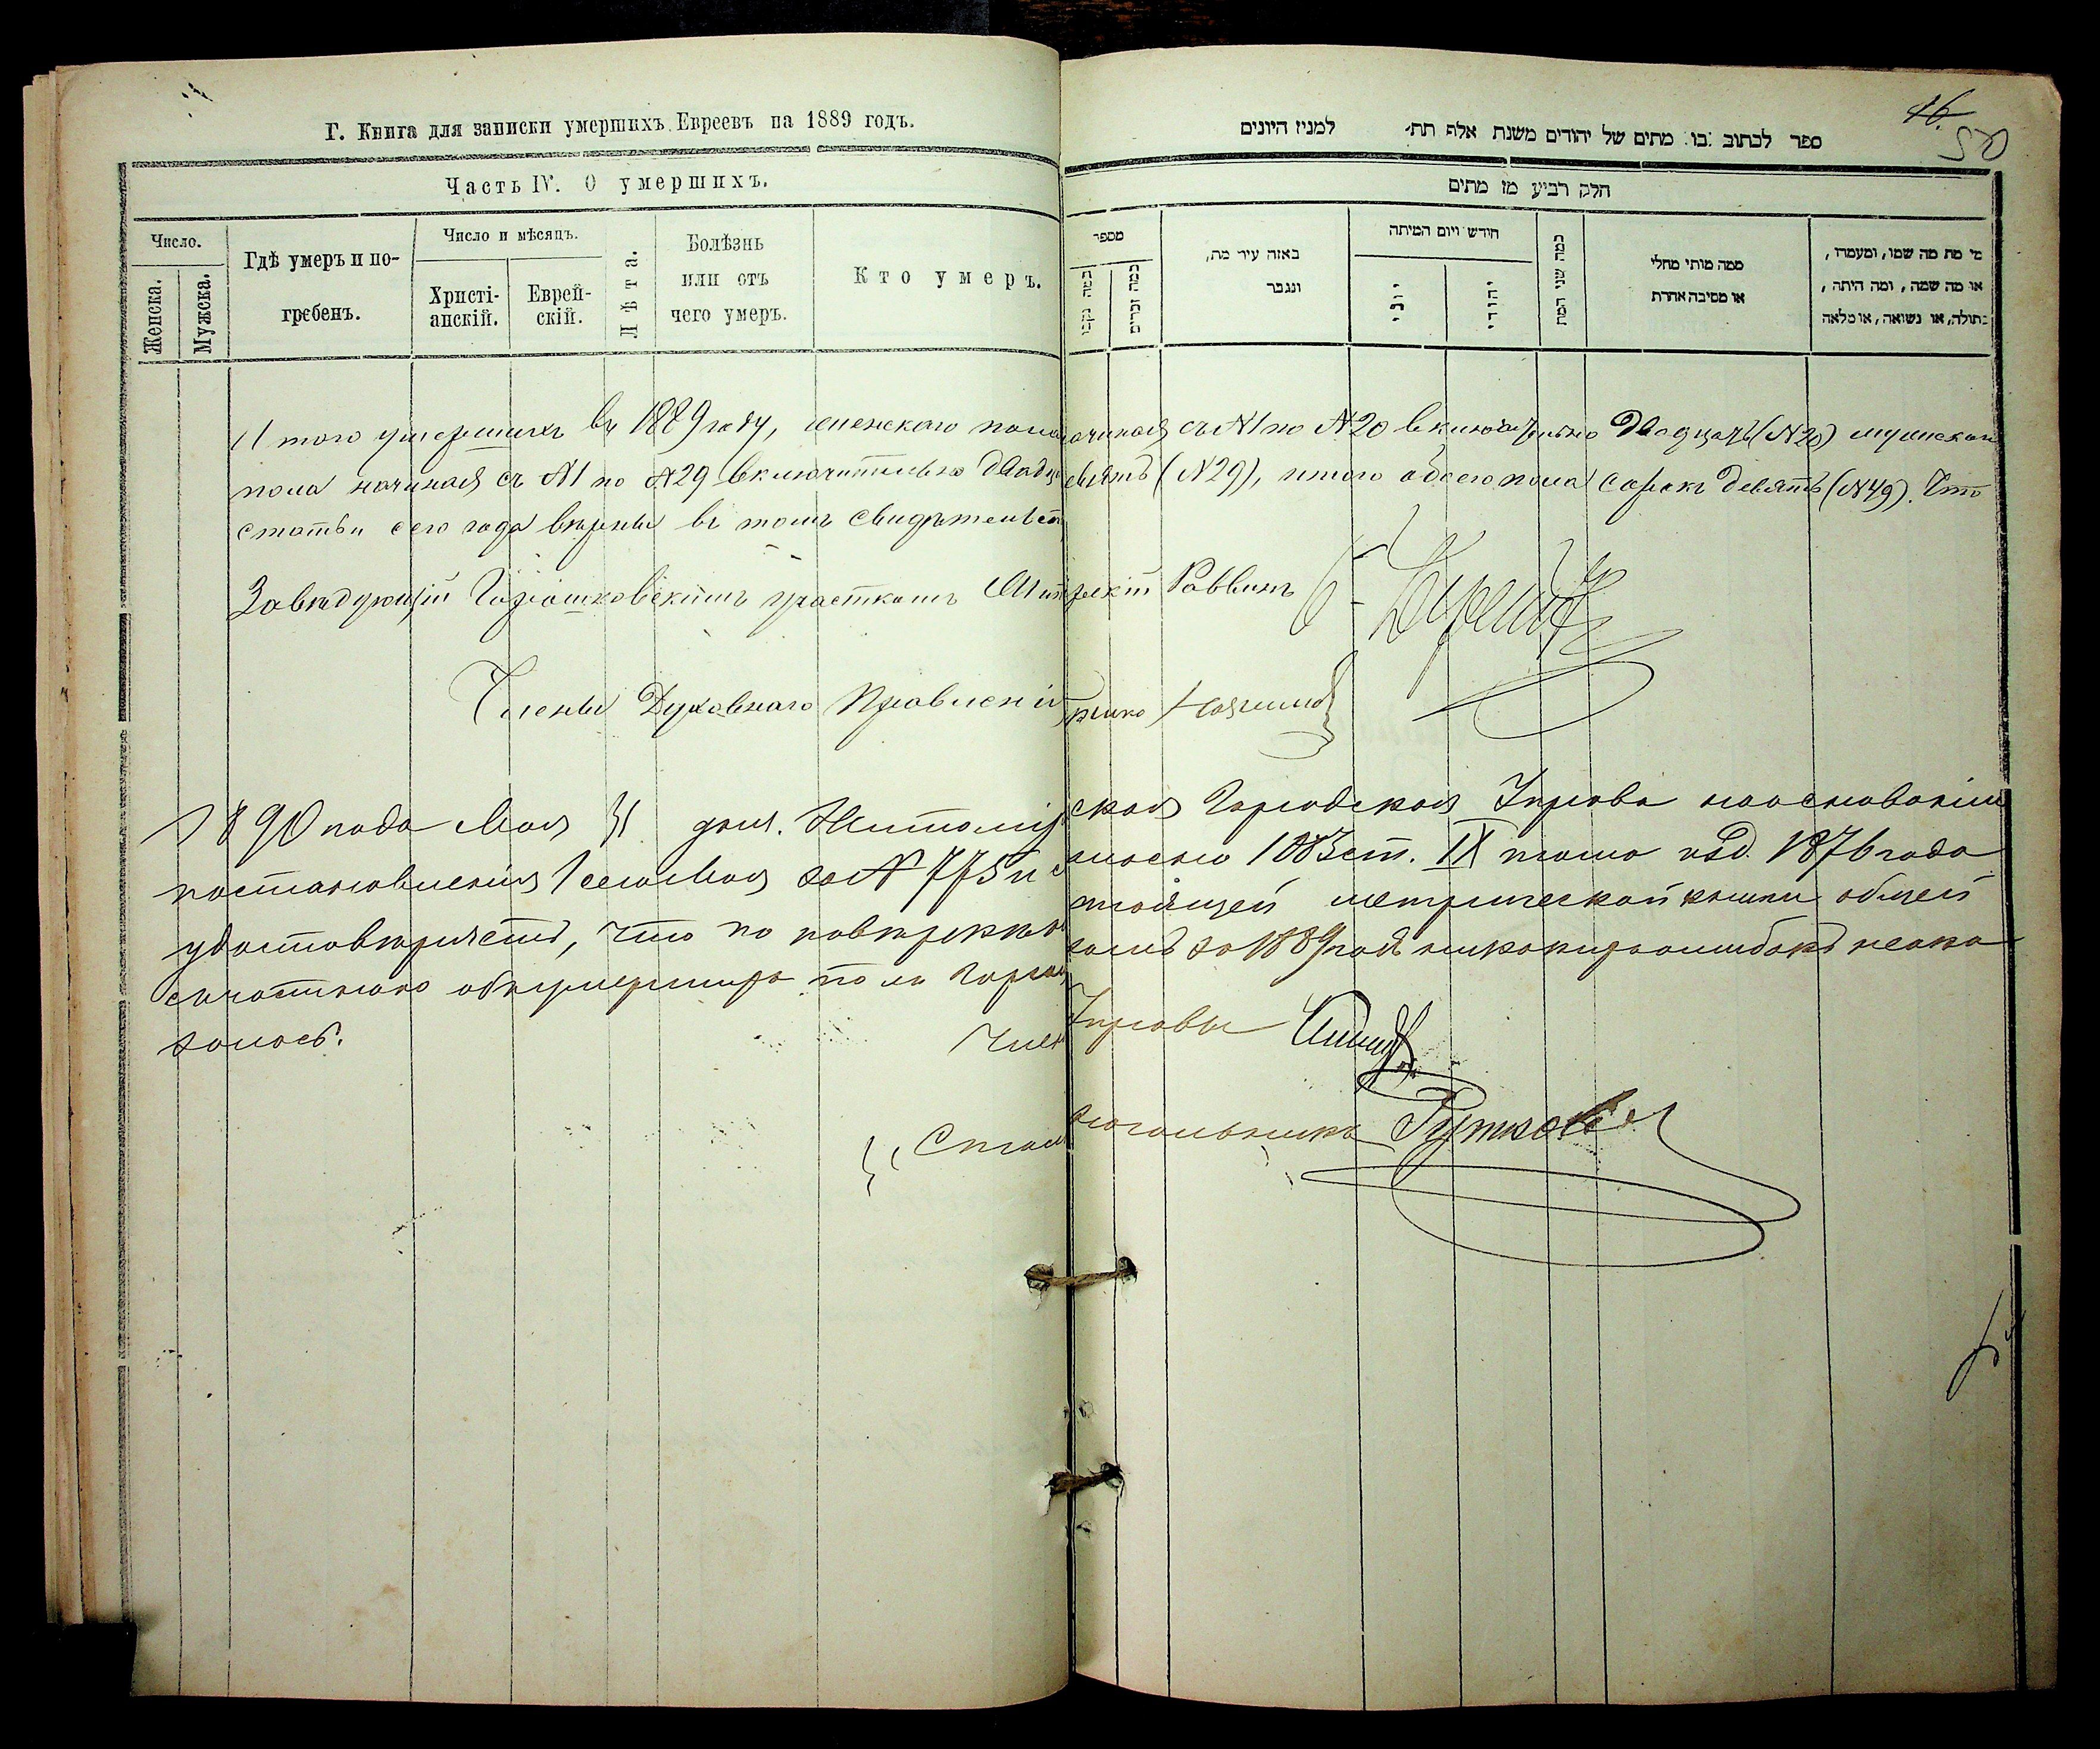 Г. Книга для записки умершихъ Евреевъ на 1889 годъ.
Часть IV. О умершихъ.
Число.
Женска.
Мужска.
Гдѣ умеръ и по-
гребенъ.
Число и мѣсяцъ.
Христі-
анскій.
Еврей-
скій.
Лѣта.
Болѣзнь
или отъ
чего умеръ.
Кто умеръ.
46.
50
ספר לכתוב בו מתים של יהודים משנת אלף תת׳ למניז היונים
חלק רביע מז מתים
מספר
כמה זכרים
באזה עיר מת,
ונגבר
חודש ויום המיתה
יוני
יהודי
כמה שני המת
ממה מותי מחלי
או מסיבה אחרת
מי מת מה שמו, ומעמדו,
או מה שמה, ומה היתה,
בתולה, או נשואה, או מלאה
Итого умершихъ въ 1889 году, женскаго пола начиная съ №1 по №20 включительно Двадцать (№20) мужскаго
пола начиная съ №1 по №29 включительно двадцать девять (№29), итого обоего пола сорокъ девять (№49). Что
статьи сего года вѣрны въ томъ свидѣтельст
Завѣдующій Горошковскимъ участкомъ Раввинъ
Члены Духовнаго Правленія
1890 года Мая 31 дня. Житомирская Городская Управа на основаніи
постановленія 1 сего Мая за № 775 и 1083 ст. IX тома изд. 1876 года
удостовѣряетъ, что по повѣркѣ настоящей метрической книги общей
за 1889 годъ никакихъ ошибокъ неока
залось.
Членъ Управы
Столоначальникъ Рутковскі